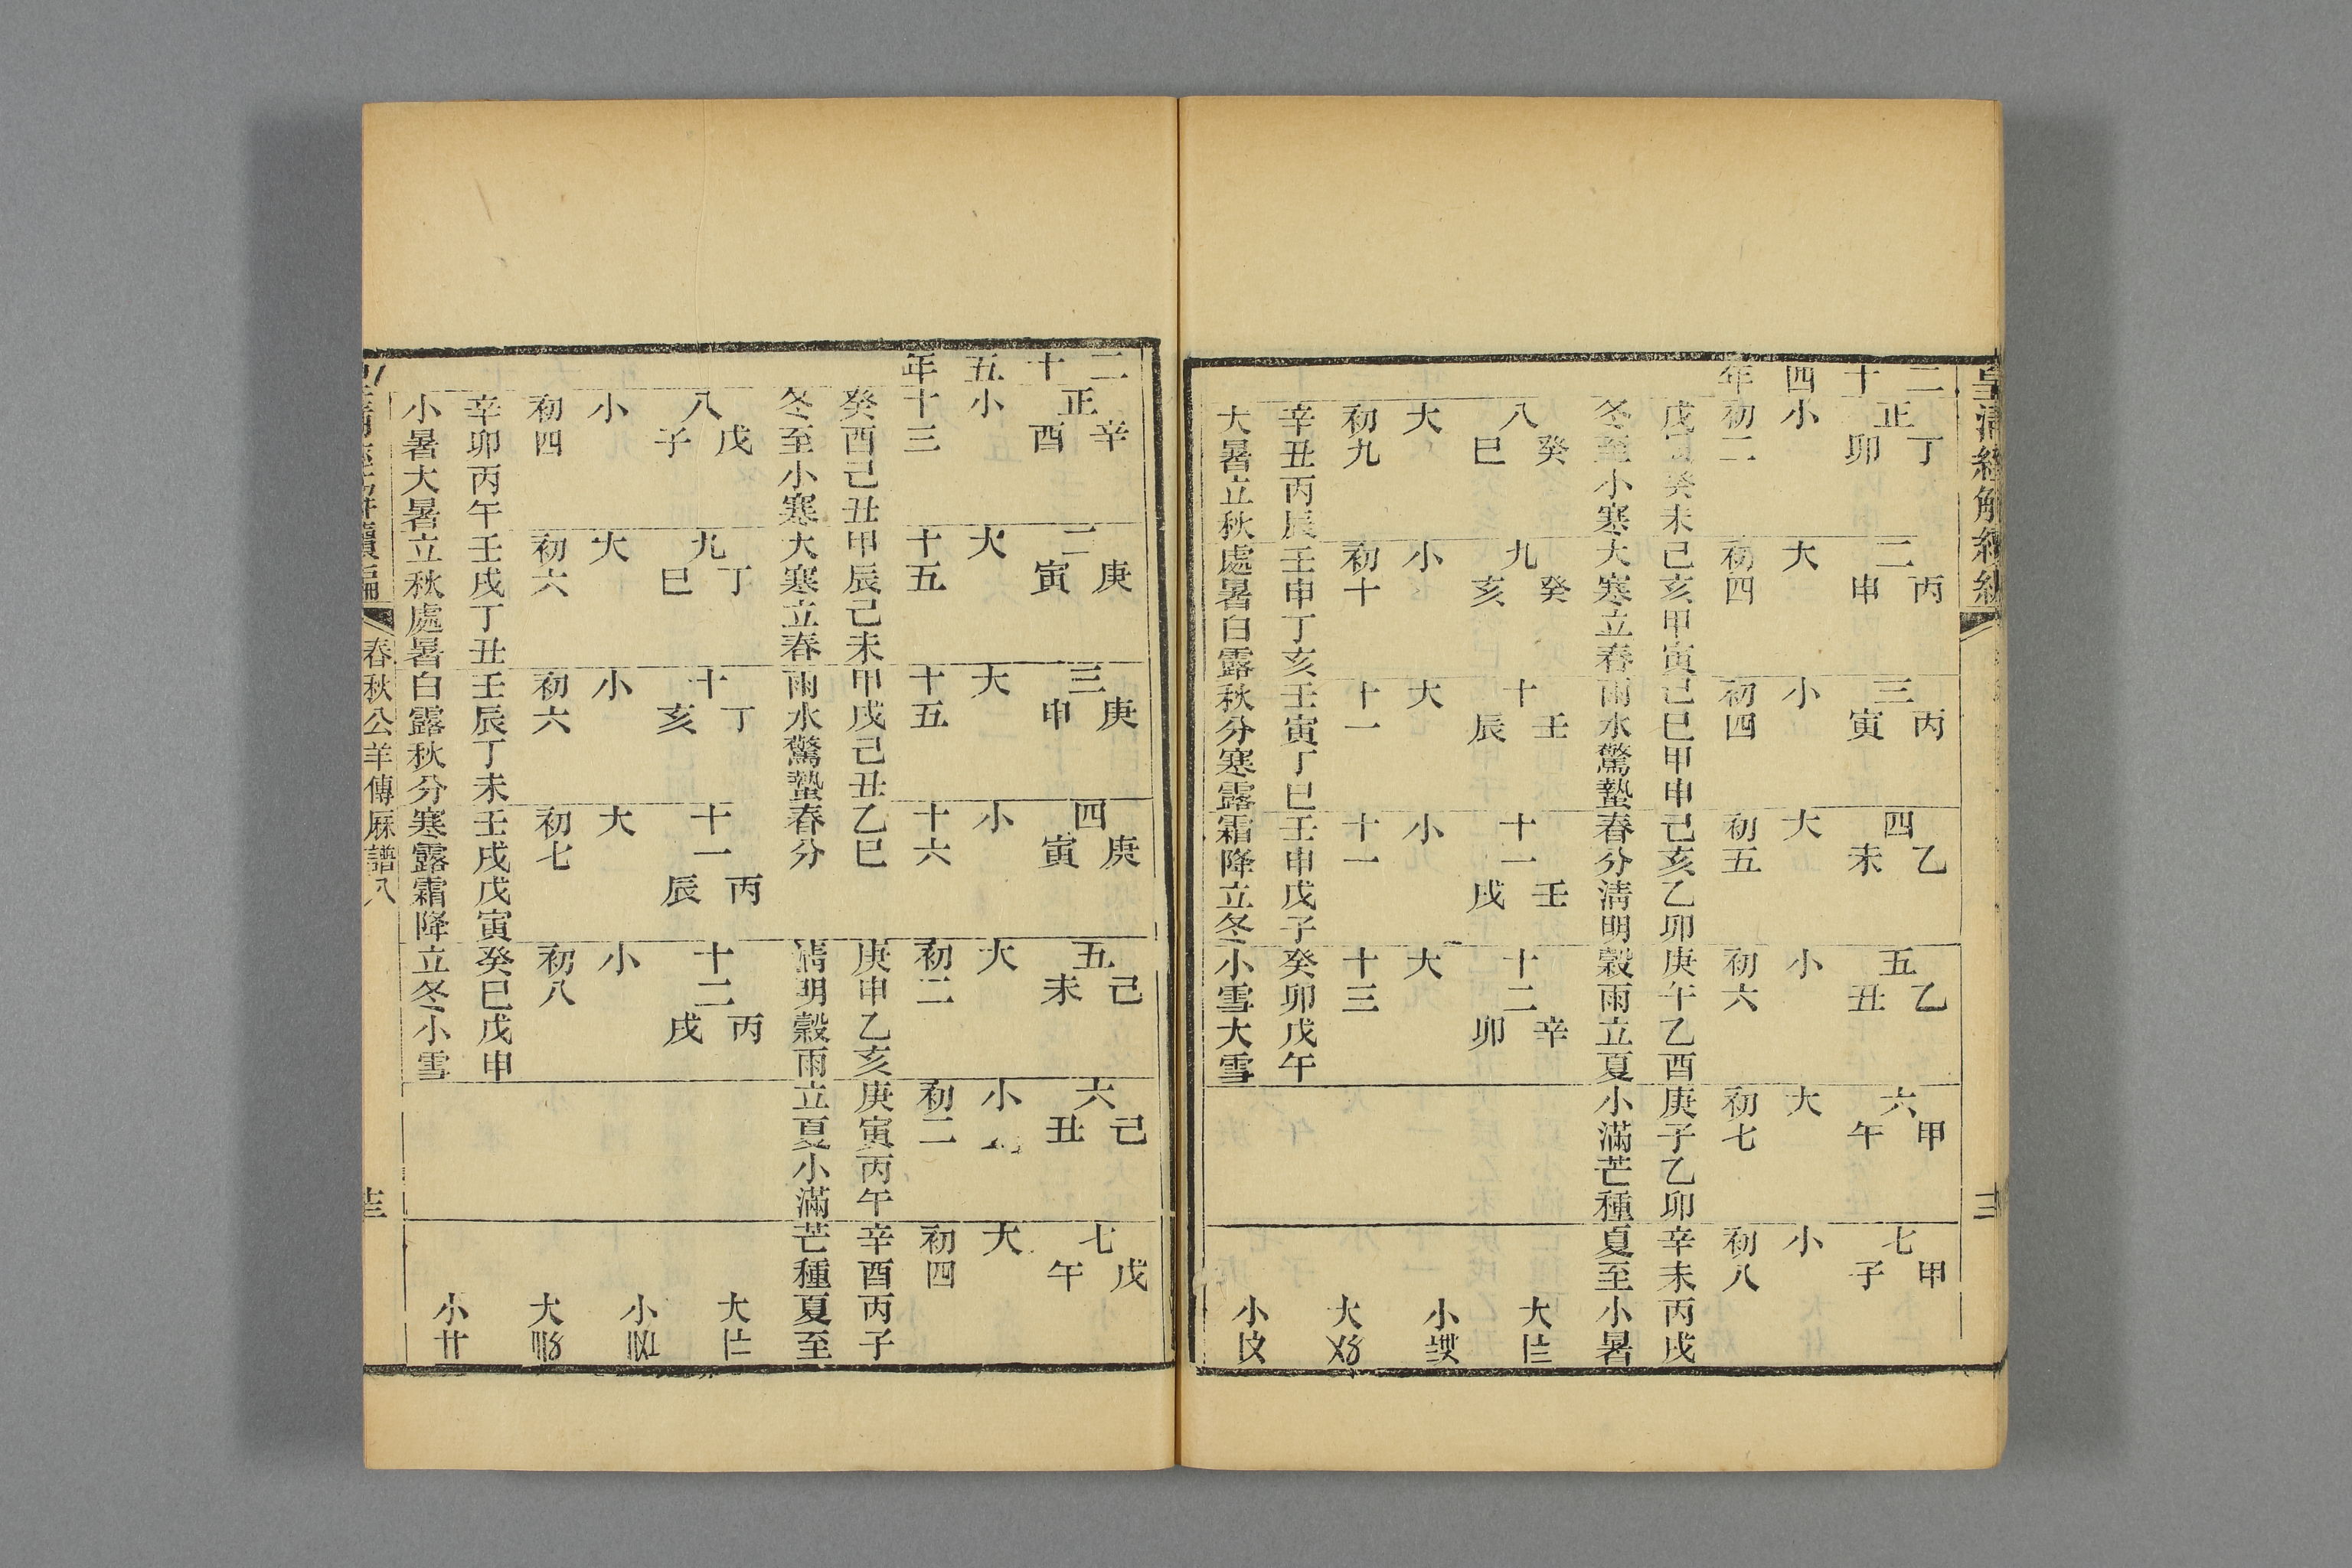 皇清經解續編
二十四年
正丁卯 二丙申 三丙寅 四乙未 五乙丑 六甲午 七甲子
小 大 小 大 小 大 小
初二 初四 初四 初五 初六 初七 初八
戊癸未己亥甲寅己巳甲申己亥乙卯庚午乙酉庚子乙卯辛未丙戌
冬至小寒大寒立春雨水驚蟄春分清明穀雨立夏小滿芒種夏至小暑
八癸巳 九癸亥 十壬辰 十一壬戌 十二辛卯 大
大 小 大 小 大 小
初九 初十 十一 十一 十三 大
辛丑丙辰壬申丁亥壬寅丁巳壬申戊子癸卯戊午
大暑立秋處暑白露秋分寒露霜降立冬小雪大雪 小
二十五年
正辛酉 二庚寅 三庚申 四庚寅 五己未 六己丑 七戊午
小 大 大 小 大 小 大
十三 十五 十五 十六 初二 初二 初四
癸酉己丑甲辰己未甲戌己丑乙巳 庚申乙亥庚寅丙午辛酉丙子
冬至小寒大寒立春雨水驚蟄春分 清明穀雨立夏小滿芒種夏至
八戊子 九丁巳 十丁亥 十一丙辰 十二丙戌 大
小 大 小 大 小 小
初四 初六 初六 初七 初八 大
辛卯丙午壬戌丁丑壬辰丁未壬戌戊寅癸巳戊申
小暑大暑立秋處暑白露秋分寒露霜降立冬小雪 小
春秋公羊傳厤譜八